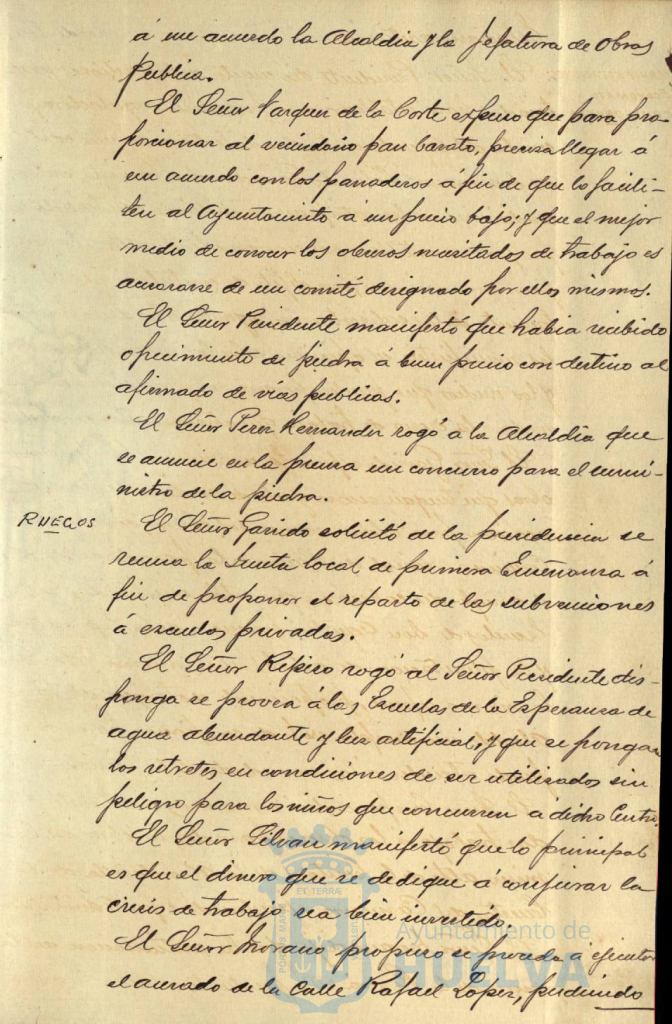 á un acuerdo la Alcaldia y la Jefatura de Obras
Publica.
El Señor Vazquez de la Corte expuso que para pro-
porcionar al vecindario pan barato, precisa llegar á
un acuerdo con los panaderos á fin de que lo facili-
ten al Ayuntamiento á un precio bajo; y que el mejor
medio de conocer los obreros necesitados de trabajo es
asesorarse de un comité designado por ellos mismos.
El Señor Presidente manifestó que habia recibido
ofrecimiento de piedra á buen precio con destino al
afirmado de vias publicas.
El Señor Perez Hernandez rogó á la Alcaldia que
se anuncie en la prensa un concurso para el sumi-
nistro de la piedra.
RUEGOS
El Señor Garrido solicitó de la presidencia se
reuna la Junta local de primera Enseñanza á
fin de proponer el reparto de las subvenciones
á escuelas privadas.
El Señor Repiso rogó al Señor Presidente dis-
ponga se provea á las Escuelas de la Esperanza de
agua abundante y luz artificial, y que se pongan
los retretes en condiciones de ser utilizados sin
peligro para los niños que concurren á dicho Centro.
El Señor Silvan manifestó que lo principal
es que el dinero que se dedique á conjurar la
crisis de trabajo sea bien invertido.
El Señor Morano propuso se proceda á ejecutar
el acerado de la Calle Rafael Lopez, pudiendo
Ayuntamiento de
HUELVA